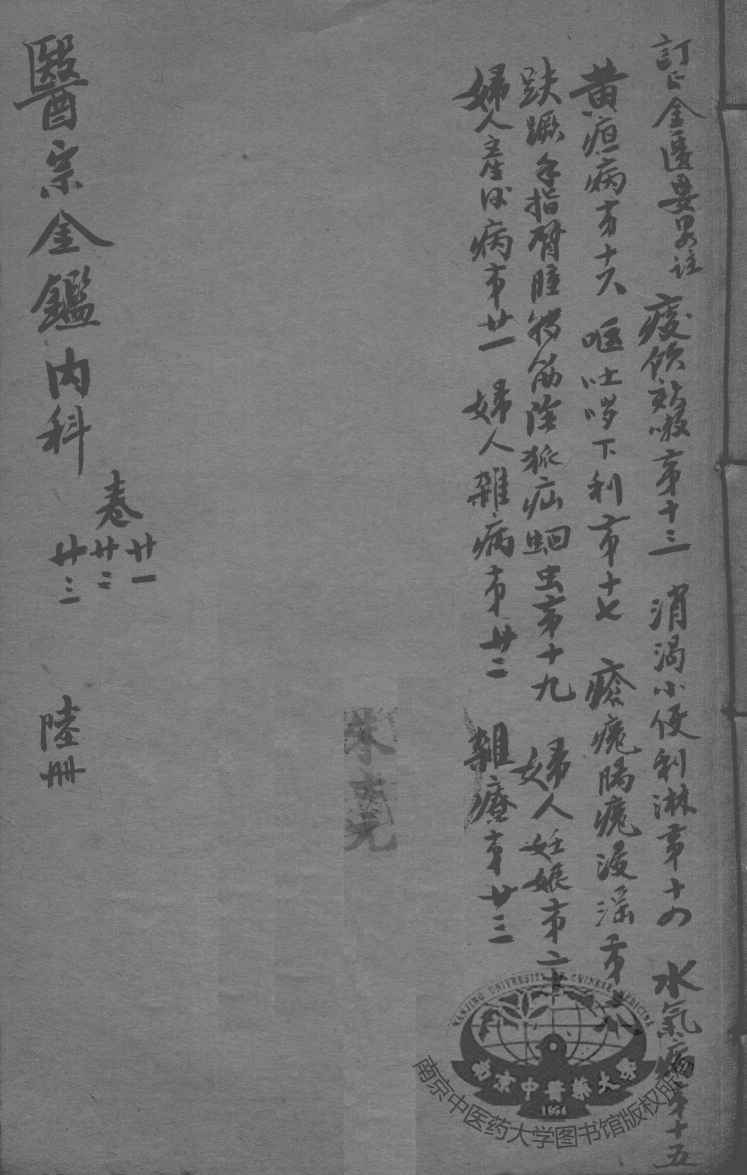 訂正金匱要畧註 痰飲欬嗽第十三 消渴小便利淋第十四 水氣病第十五
黄疸病第十六 嘔吐哕下利第十七 瘡癰腸癰浸淫第十八
趺蹶手指臂腫转筋陰狐疝蛔虫第十九 婦人妊娠第二十
婦人產後病第廿一 婦人雜病第廿二 雜療第廿三
醫宗金鑑内科 卷 廿一 廿二 廿三 陸冊
NANJING UNIVERSITY OF CHINESE MEDICINE
南京中醫藥大學
1954
南京中医药大学图书馆版权所